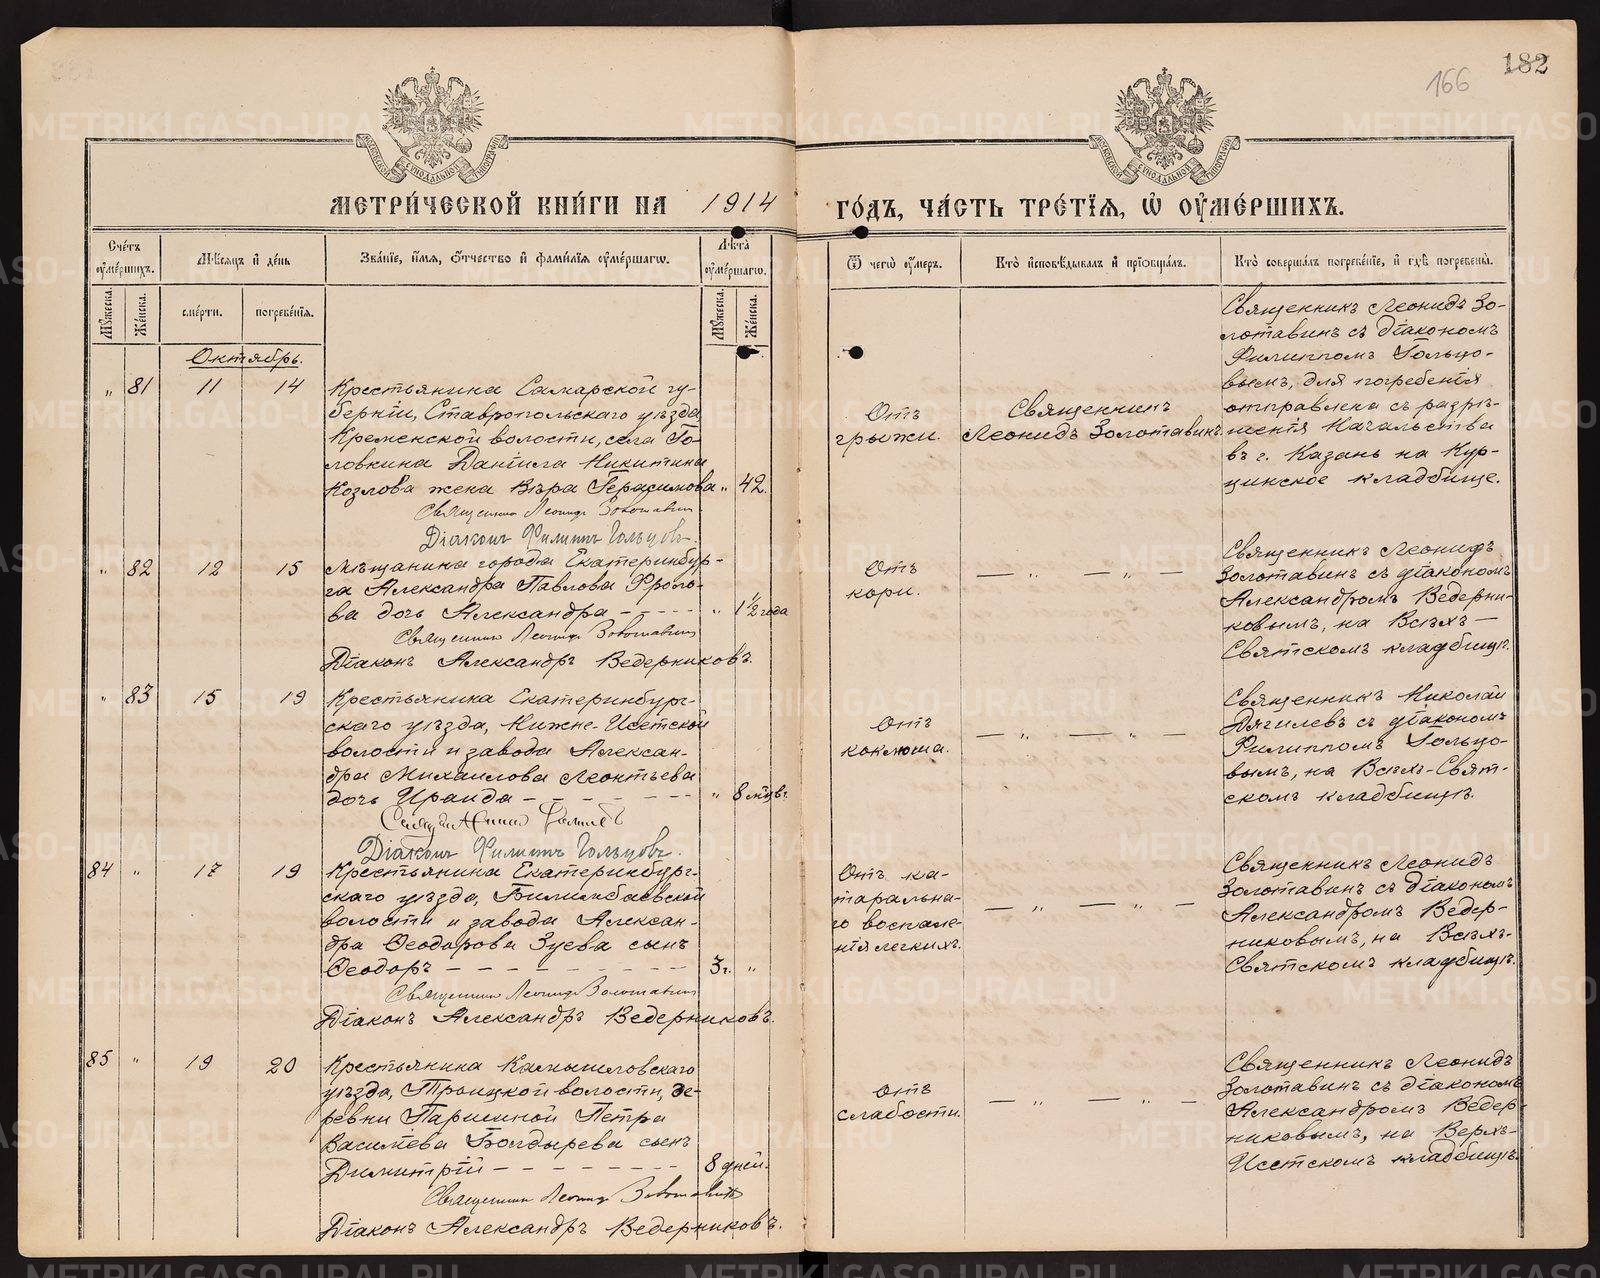 182
166
МОСКОВСКОЙ СѴНОДАЛЬНОЙ ТИПОГРАФІИ
МОСКОВСКОЙ СѴНОДАЛЬНОЙ ТИПОГРАФІИ
МЕТРИ́ЧЕСКОЙ КНИ́ГИ НА 1914 ГО́ДЪ, ЧА́СТЬ ТРЕ́ТІѦ, Ѡ҆ ОУ҆МЕ́РШИХЪ.
Сче́тъ оу҆ме́ршихъ.
Мꙋ́жеска.
Же́нска.
Мѣ́сяцъ и҆ де́нь
сме́рти.
погребе́нїя.
Зва́нїе, и҆́мя, ѻ҆́тчество и҆ фами́лїя оу҆ме́ршагѡ.
Лѣ́та оу҆ме́ршагѡ.
Мꙋ́жеска.
Же́нска.
Ѿ чегѡ̀ оу҆́меръ.
Кто̀ и҆сповѣ́дывалъ и҆ прїѡбща́лъ.
Кто̀ соверша́лъ погребе́нїе, и҆ гдѣ̀ погребены̀.
Октябрь.
„ 81 11 14
Крестьянина Самарской гу-
берніи, Ставропольскаго уѣзда
Кременской волости, села Го-
ловкина Даніила Никитина
Козлова жена Вѣра Герасимова „ 42.
Священникъ Леонидъ Золотавинъ
Діаконъ Филиппъ Гольцовъ.
Отъ
грыжи.
Священникъ
Леонидъ Золотавинъ.
Священникъ Леонидъ Зо-
лотавинъ съ діакономъ
Филиппомъ Гольцо-
вымъ, для погребенія
отправлена съ разрѣ-
шенія Начальства
въ г. Казань на Кур-
тинское кладбище.
„ 82 12 15
Мѣщанина города Екатеринбур-
га Александра Павлова Фроло-
ва дочь Александра - - - - „ 1 1/2 года
Священникъ Леонидъ Золотавинъ
Діаконъ Александръ Ведерниковъ.
Отъ
кори.
— „ — „ —
Священникъ Леонидъ
Золотавинъ съ діакономъ
Александромъ Ведерни-
ковымъ, на Всѣхъ-
Святскомъ кладбищѣ.
„ 83 15 19
Крестьянина Екатеринбург-
скаго уѣзда, Нижне-Исетской
волости и завода Алексан-
дра Михаилова Леонтьева
дочь Ираида - - - - - „ 8 м-цвъ
Священникъ
Діаконъ Филиппъ Гольцовъ.
Отъ
коклюша.
— „ — „ —
Священникъ Николай
Дягилевъ съ діакономъ
Филиппомъ Гольцо-
вымъ, на Всѣхъ-Свят-
скомъ кладбищѣ.
84 „ 17 19
Крестьянина Екатеринбург-
скаго уѣзда, Билимбаевской
волости и завода Алексан-
дра Ѳеодорова Зуева сынъ
Ѳеодоръ - - - - - - - - 3 г. „
Священникъ Леонидъ Золотавинъ
Діаконъ Александръ Ведерниковъ.
Отъ ка-
таральна-
го воспале-
нія легкихъ.
— „ — „ —
Священникъ Леонидъ
Золотавинъ съ діакономъ
Александромъ Ведер-
никовымъ, на Всѣхъ-
Святскомъ кладбищѣ.
85 „ 19 20
Крестьянина Камышловскаго
уѣзда, Троицкой волости, де-
ревни Паршиной Петра
Васильева Болдырева сынъ
Димитрій - - - - - - - 8 дней.
Священникъ Леонидъ Золотавинъ
Діаконъ Александръ Ведерниковъ.
Отъ
слабости.
— „ — „ —
Священникъ Леонидъ
Золотавинъ съ діакономъ
Александромъ Ведер-
никовымъ, на Верхъ-
Исетскомъ кладбищѣ.
METRIKI.GASO-URAL.RU